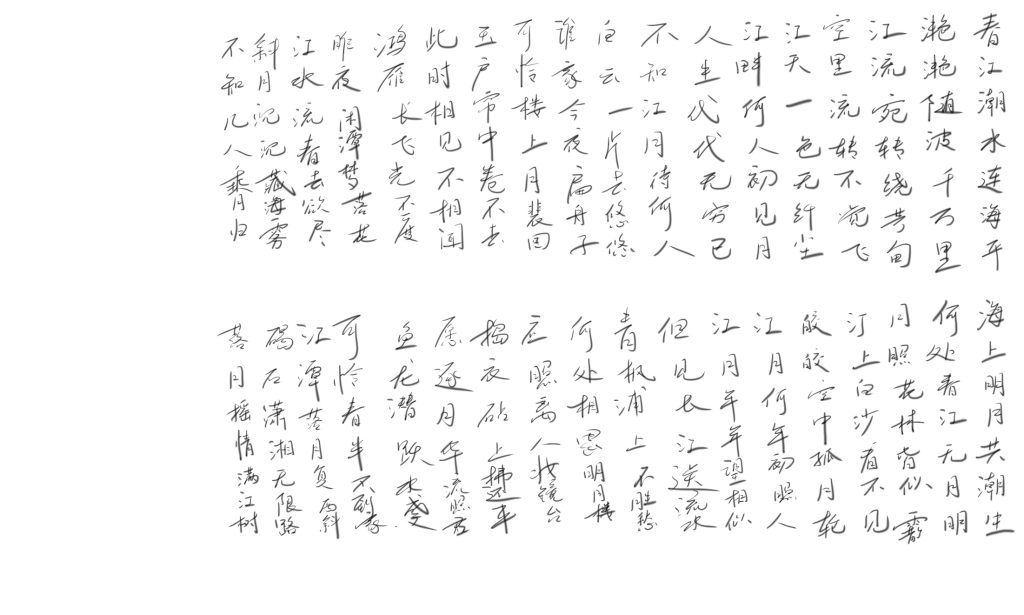 春江潮水连海平
海上明月共潮生
滟滟随波千万里
何处春江无月明
江流宛转绕芳甸
月照花林皆似霰
空里流转不觉飞
汀上白沙看不见
江天一色无纤尘
皎皎空中孤月轮
江畔何人初见月
江月何年初照人
人生代代无穷已
江月年年望相似
不知江月待何人
但见长江送流水
白云一片去悠悠
青枫浦上不胜愁
谁家今夜扁舟子
何处相思明月楼
可怜楼上月裴回
应照离人妆镜台
玉户帘中卷不去
捣衣砧上拂还来
此时相见不相闻
愿逐月华流照君
鸿雁长飞光不度
鱼龙潜跃水成文
昨夜闲潭梦落花
可怜春半不还家
江水流春去欲尽
江潭落月复西斜
斜月沉沉藏海雾
碣石潇湘无限路
不知几人乘月归
落月摇情满江树